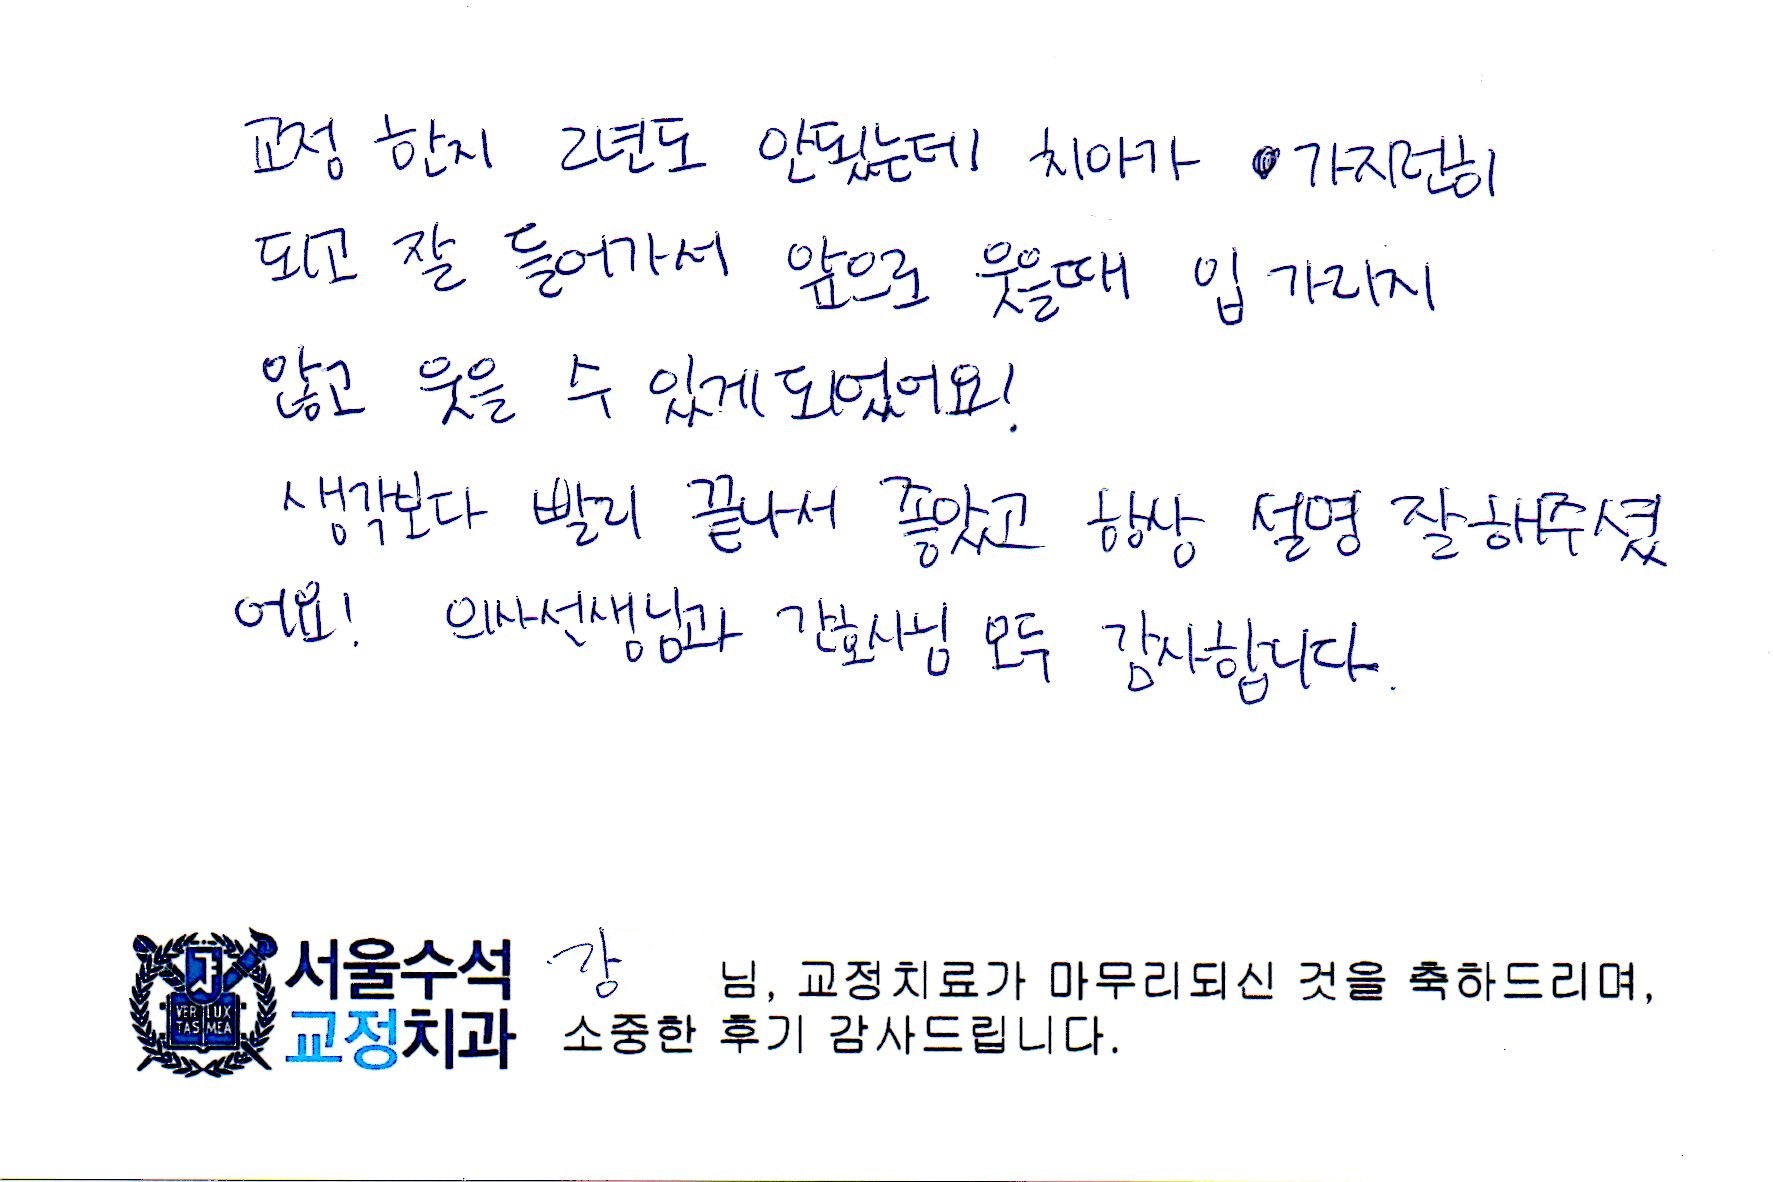 교정 한지 2년도 안됬는데 치아가 가지런히
되고 잘 들어가서 앞으로 웃을때 입 가리지
않고 웃을 수 있게 되었어요!
생각보다 빨리 끝나서 좋았고 항상 설명 잘해주셨
어요! 의사선생님과 간호사님 모두 감사합니다.
서울수석
교정치과
VERI LUX
TAS MEA
강 님, 교정치료가 마무리되신 것을 축하드리며,
소중한 후기 감사드립니다.